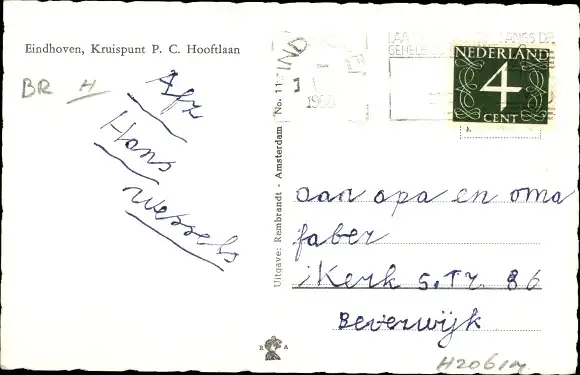 Eindhoven, Kruispunt P. C. Hooftlaan
BR H
Afz
Hans
Wessels
Uitgave: Rembrandt - Amsterdam No. 11
NEDERLAND
4
CENT
aan opa en oma
faber
Kerk s.Tr. 86
Beverwijk
R A